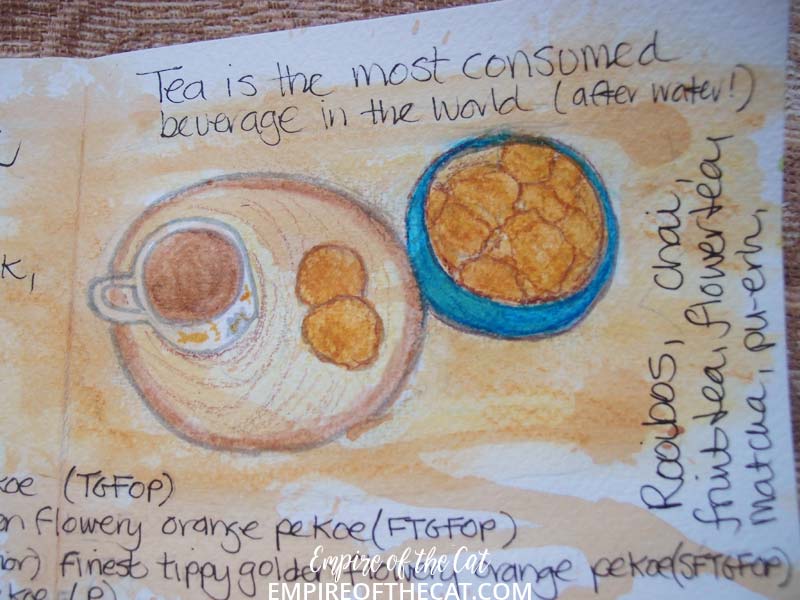 Tea is the most consumed
beverage in the world (after water!)
k,
Rooibos, chai,
fruit tea, flower tea,
matcha, pu-erh,
koe (TGFOP)
en flowery orange pekoe (FTGFOP)
finest tippy golden flowery orange pekoe (SFTGFOP)
Empire of the Cat
EMPIREOFTHECAT.COM